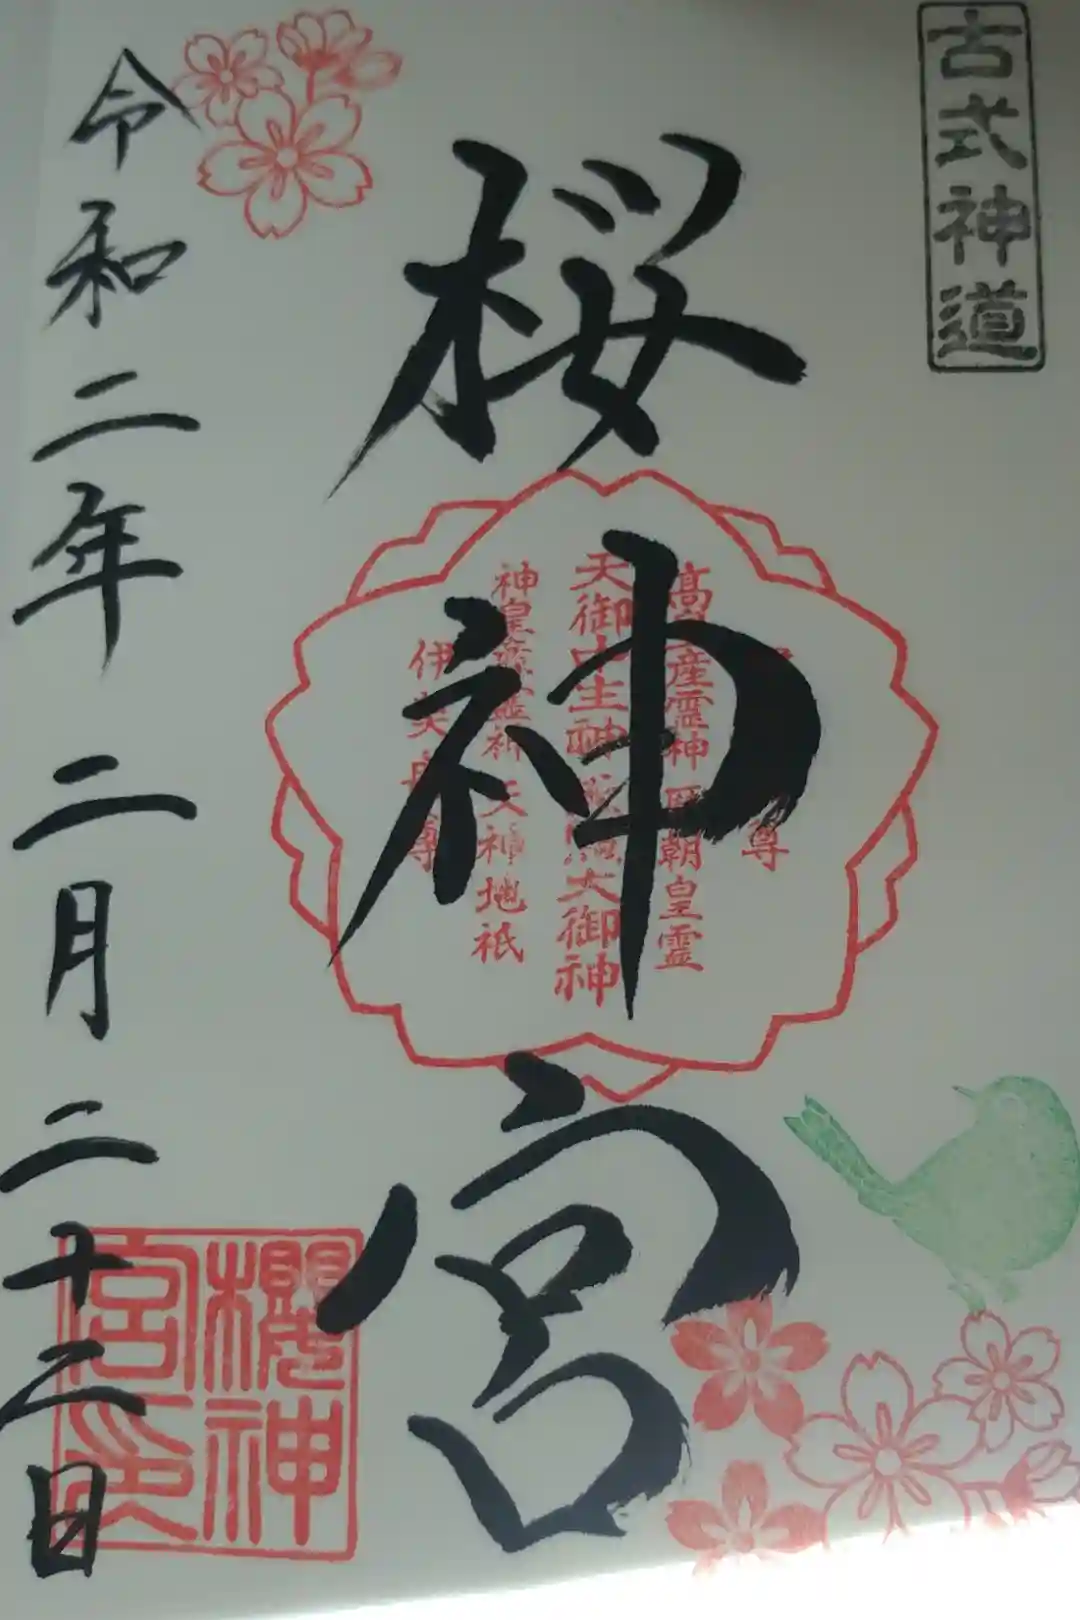 古式神道
桜神宮
高
産霊神
朝皇霊
尊
天御中主神
大御神
神皇産霊神
天神地祇
伊
尊
櫻神
宮印
令和二年 二月 二十二日